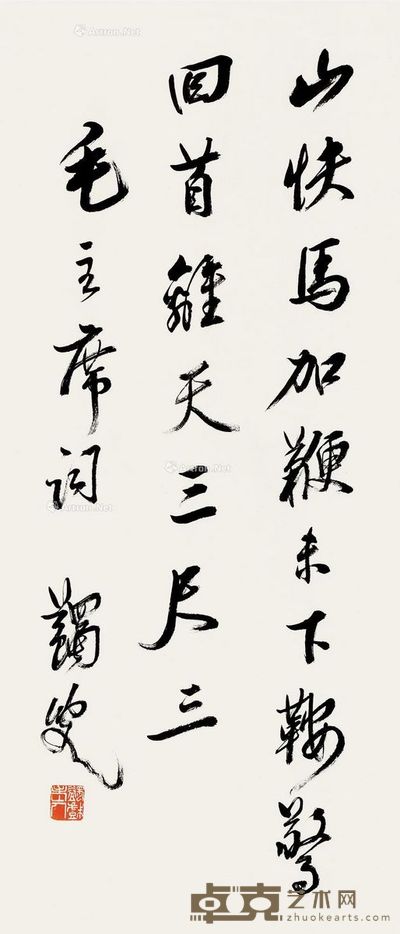 山快馬加鞭未下鞍驚
回首離天三尺三
毛主席詞
蠲叟
卓克艺术网
zhuokearts.com
Artron.Net
Artron.Net
Artron.Net